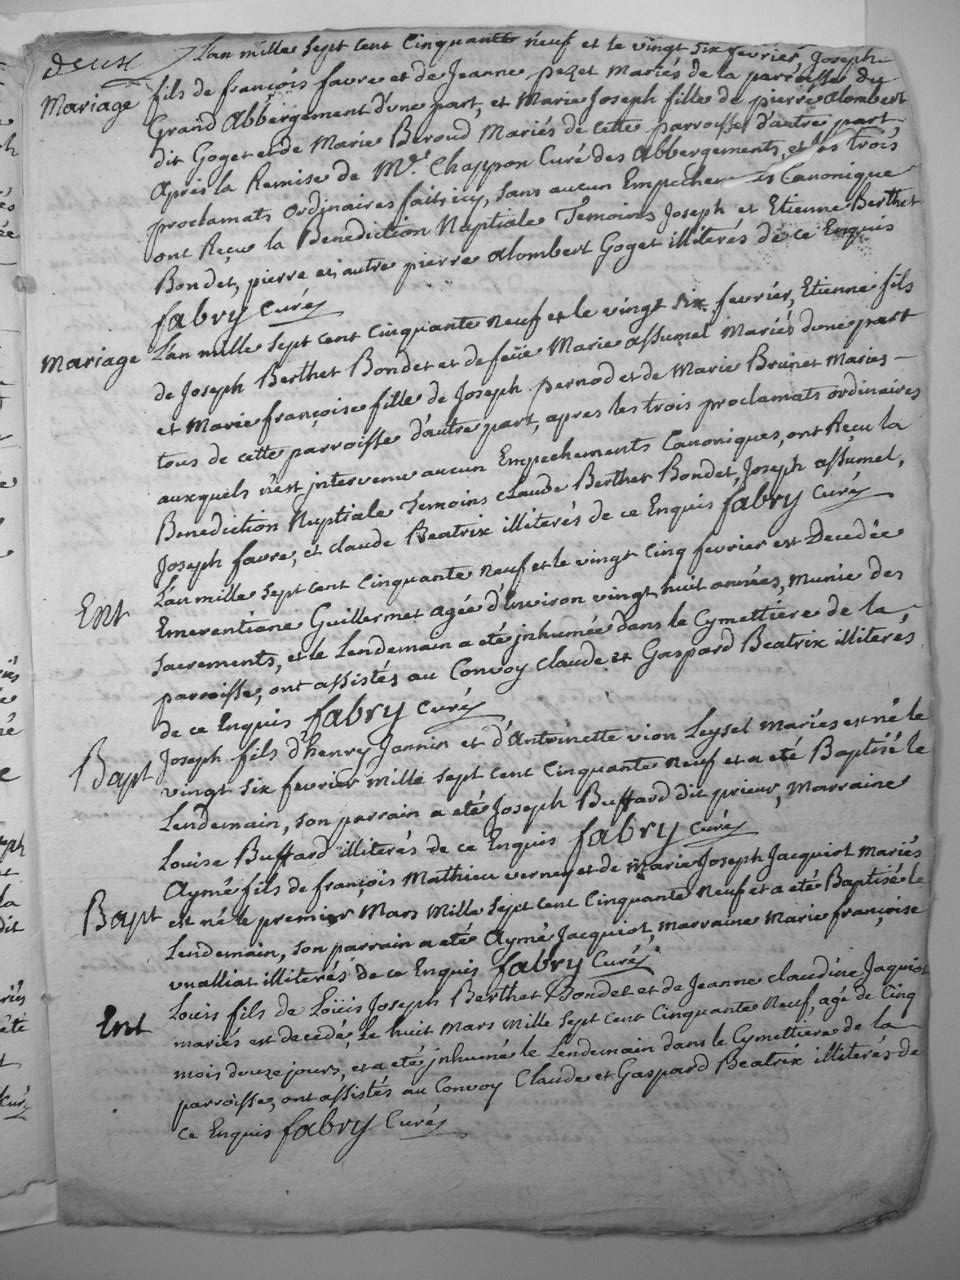 deux
Mariage
L'an mille sept cent Cinquante neuf et le vingt six fevrier Joseph
fils de françois favre et de Jeanne pezet Mariés de la parroisse du
Grand Abbergement d'une part, et Marie Joseph fille de pierre alombert
dit Goget et de Marie Beroud Mariés de cette parroisse d'autre part
Après la Remise de Mr. Chappon Curé des Abbergements, et les trois
proclamats ordinaires faits icy, sans aucun Empechements Canonique
ont Reçu la Benediction Nuptiale Temoins Joseph et Etienne Berthet
Bondet, pierre et autre pierre alombert Goget illiterés de ce Enquis
fabry Curé
Mariage
L'an mille sept cent cinquante neuf et le vingt six fevrier, Etienne fils
de Joseph Berthet Bondet et de feüe Marie assumel Mariés d'une part
et Marie françoise fille de Joseph pernod et de Marie Brunet Mariés
tous de cette parroisse d'autre part, apres les trois proclamats ordinaires
auxquels n'est intervenu aucun Empechements Canoniques, ont Reçu la
Benediction Nuptiale Temoins Claude Berthet Bondet, Joseph assumel,
Joseph favre, et claude Beatrix illiterés de ce Enquis fabry Curé
Ent
L'an mille sept cent Cinquante neuf et le vingt cinq fevrier est Decedée
Emerentiane Guillermet agée d'Environ vingt huit années, munie des
sacrements, et le Lendemain a eté inhumée dans le Cymettiere de la
parroisse, ont assistés au Convoy Claude et Gaspard Beatrix illiterés
de ce Enquis fabry Curé
Bapt
Joseph fils d'henry Jannin et d'Antoinette vion Leysel mariés est né le
vingt six fevrier mille sept cent Cinquante neuf et a eté Baptisé le
Lendemain, son parrain a eté Joseph Buffard dit prieur, Marraine
Louise Buffard illiterés de ce Enquis fabry Curé
Bapt
Aymé fils de françois Mathieu verney et de Marie Joseph Jacquiot mariés
est né le premier Mars mille sept cent Cinquante neuf et a eté Baptisé le
Lendemain, son parrain a eté Aymé Jacquiot, marraine Marie françoise
vualliat illiterés de ce Enquis fabry Curé
Ent
Louis fils de Loüis Joseph Berthet Bondet et de Jeanne claudine Jaquiot
mariés est decedé, Le huit mars mille sept cent Cinquante neuf, agé de Cinq
mois douze jours, et a eté inhumé le Lendemain dans le Cymettiere de la
parroisse, ont assistés au Convoy Claude et Gaspard Beatrix illiterés de
ce Enquis fabry Curé